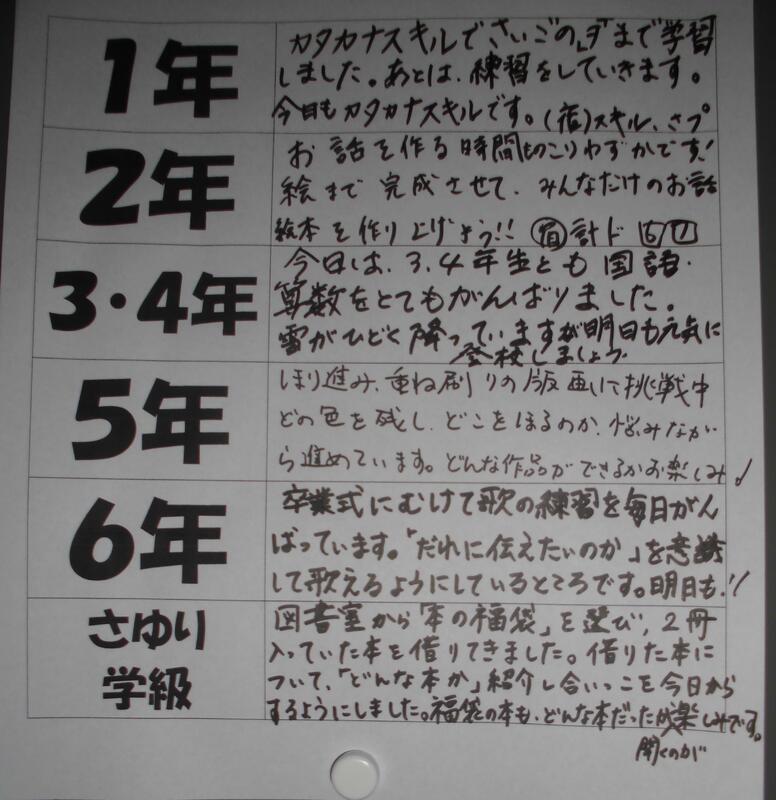 1年
カタカナスキルでさいごの「ヺまで学習
しました。あとは、練習をしていきます。
今日もカタカナスキルです。(宿)スキル、さプ
2年
お話を作る時間ものこりわずかです!
絵まで完成させて、みんなだけのお話
絵本を作り上げよう!! 宿計ド 6 7
3・4年
今日は、3、4年生とも国語・
算数をとてもがんばりました。
雪がひどく降っていますが明日も元気に
登校しましょう。
5年
ほり進み、重ね刷りの版画に挑戦中
どの色を残し、どこをほるのか、悩みなが
ら進めています。どんな作品ができるかお楽しみ!
6年
卒業式にむけて歌の練習を毎日がん
ばっています。「だれに伝えたいのか」を意識
して歌えるようにしているところです。明日も!!
さゆり
学級
図書室から「本の福袋」を選び、2冊
入っていた本を借りてきました。借りた本に
ついて、「どんな本か」紹介し合いっこを今日から
するようにしました。福袋の本も、どんな本だったか楽しみです。
聞くのが